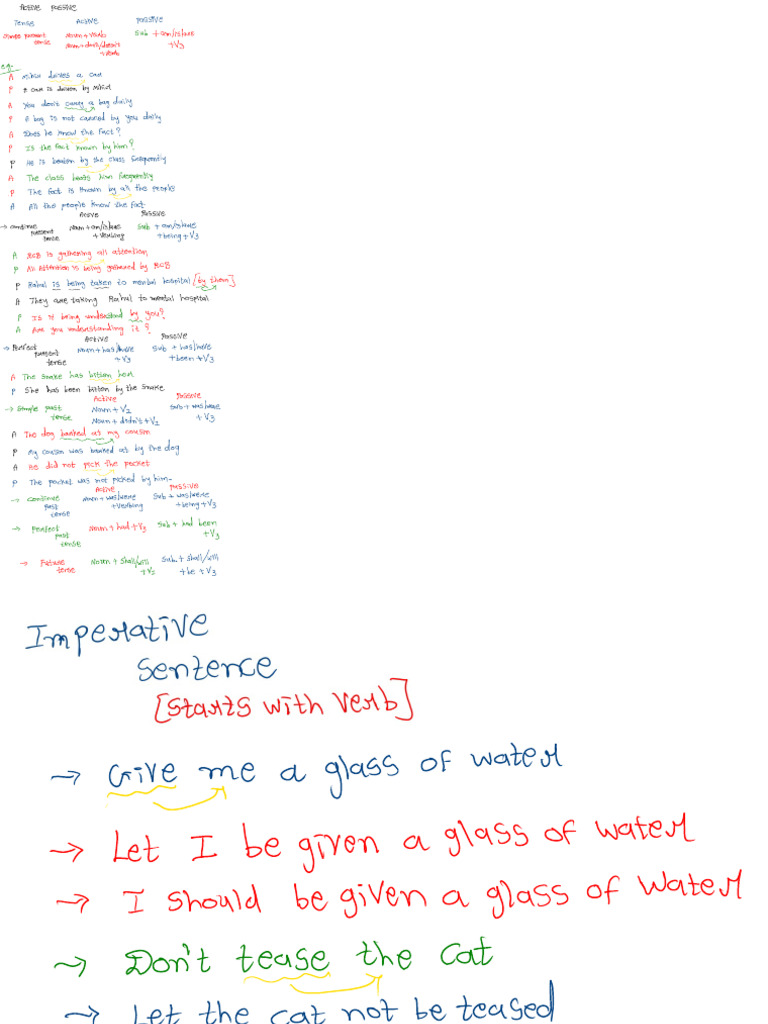 Active Passive
Tense Active Passive
Simple present tense Noun + Verb Sub + am/is/are + V3
Noun + don't/doesn't + verb
eg:-
A Nikhil drives a car
P A car is driven by Nikhil
A You don't carry a bag daily
P A bag is not carried by you daily
A Does he know the fact?
P Is the fact known by him?
P He is beaten by the class frequently
A The class beats him frequently
P The fact is known by all the people
A All the people know the fact
Active Passive
→ Continue present tense Noun + am/is/are + Verbing Sub + am/is/are + being + V3
A RCB is gathering all attention
P All Attention is being gathered by RCB
P Rahul is being taken to mental hospital [by them]
A They are taking Rahul to mental hospital
P Is it being understand by you?
A Are you understanding it?
Active Passive
→ Perfect present tense Noun + has/have + V3 Sub + has/have + been + V3
A The snake has bitten her
P She has been bitten by the snake
Active Passive
→ Simple past tense Noun + V2 Sub + was/were + V3
Noun + didn't + V1
A The dog barked at my cousin
P My cousin was barked at by the dog
A He did not pick the pocket
P The pocket was not picked by him
Active Passive
→ Continue past tense Noun + was/were + Verbing Sub + was/were + being + V3
→ Perfect past tense Noun + had + V3 Sub + had been + V3
→ Future tense Noun + Shall/will + V1 Sub + Shall/will + be + V3
Imperative
Sentence
[starts with verb]
→ Give me a glass of water
→ Let I be given a glass of water
→ I should be given a glass of water
→ Don't tease the cat
→ Let the cat not be teased